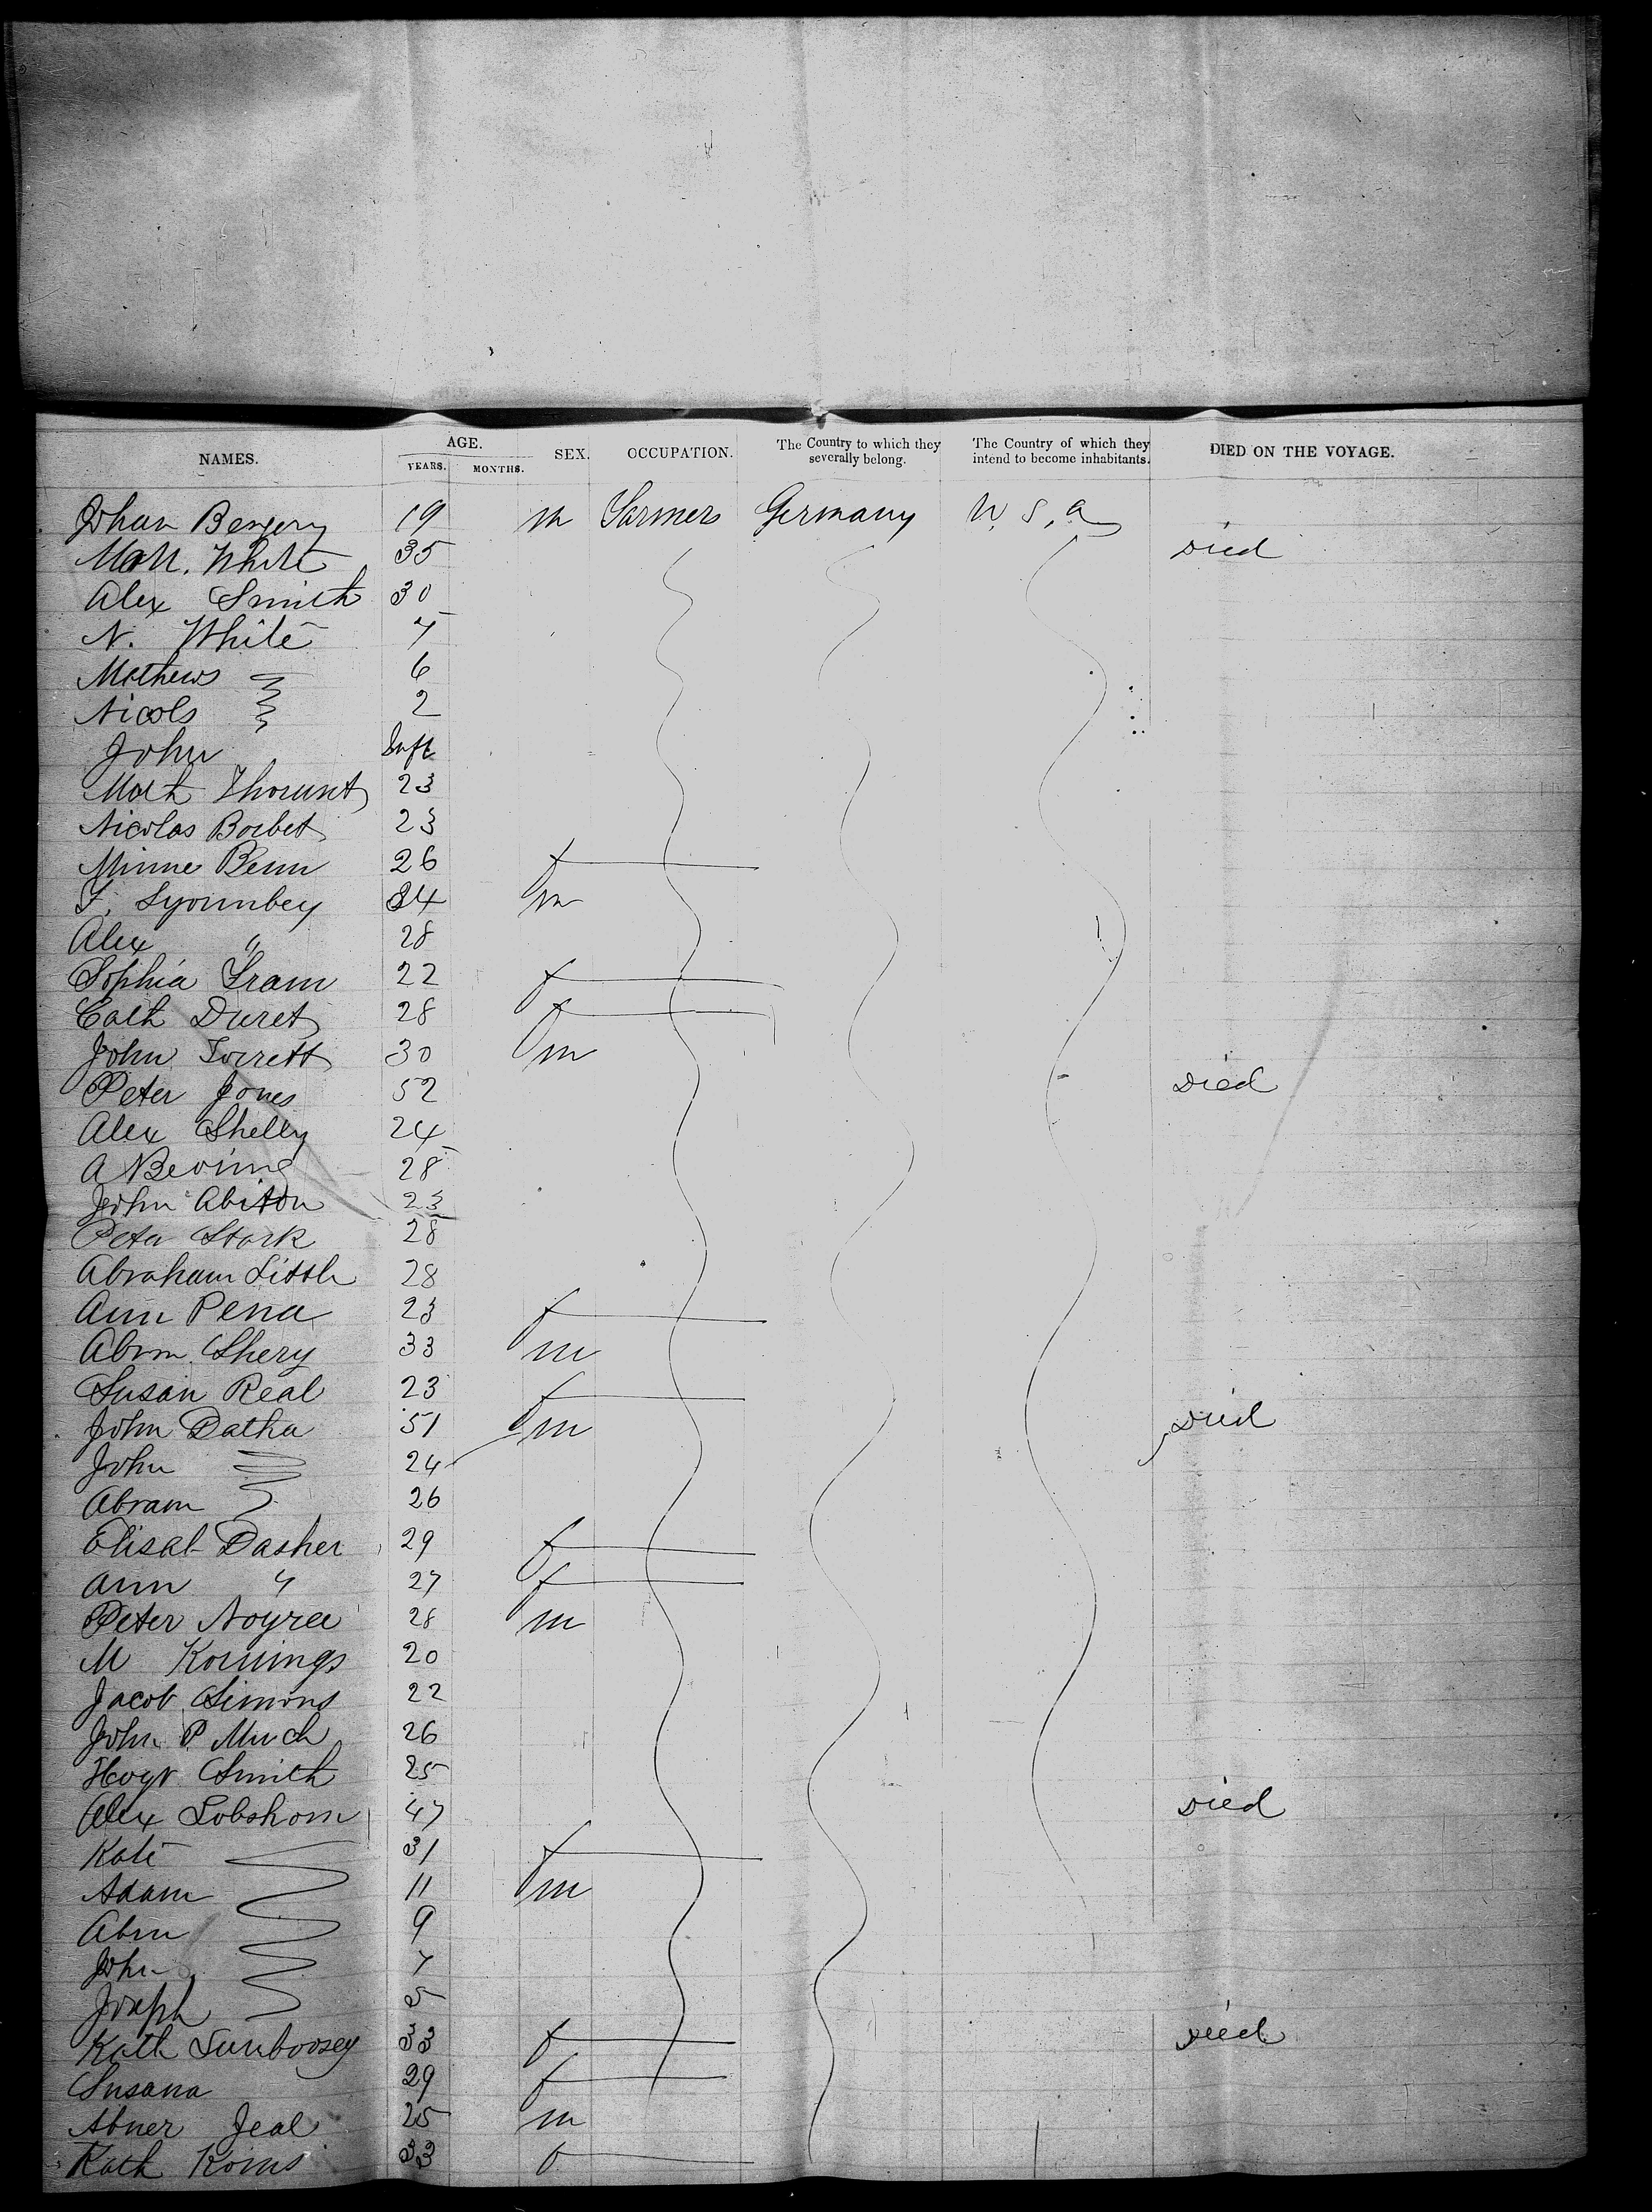 NAMES. AGE. YEARS. MONTHS. SEX. OCCUPATION. The Country to which they severally belong. The Country of which they intend to become inhabitants. DIED ON THE VOYAGE.
Johan 19 m Farmers Germany U, S, a
White 35 Died
Alex Smith 30
N. White 7
Mathews 6
Nicols 2
John Inft
Math 23
Nicolas Borbet 23
Minne Benn 26 f
34 m
Alex " 28
Sophia Fram 22 f
Cath Duret 28 f
John 30 m
Peter Jones 52 Died
Alex Shelly 24
A 28
John Abiton 23
Peter Stark 28
Abraham Little 28
Ann Pena 23 f
Abrm. Shery 33 m
Susan Real 23 f
John Datha 51 m Died
John 24
Abram 26
Elisab Dasher 29 f
Ann " 27 f
Peter Noyree 28 m
M 20
Jacob Simons 22
John P Much 26
Smith 25
Alex Lobshom 47 Died
Kate 31 f
Adam 11 m
Abm 9
John 7
Joseph 5
Kath 33 f Died
Susana 29 f
Abner Jeal 25 m
Kath Koins 33 f